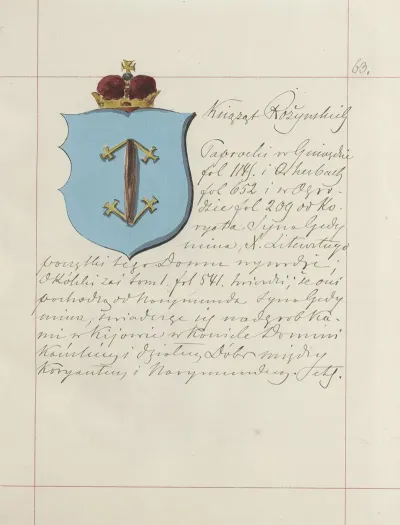 63.
Książąt Rożynskich
Paprocki w Gniazdie
fol 1185. i Osherbach
fol 652 i w Ogro-
dzie fol 209 od Ko-
ryatta Syna Gedy
mina, X. Litewskiego
początki tego Domu wywodzi,
Okolski zaś tom 1. fol 541. twierdzi, że oni
pochodzą od Narymunda Syna Gedy
mina, świadcząc się nadgrobka-
mi w Kijowie w Kościele Domini
kańskim i działem Dóbr między
Koryantem i Narymundem.